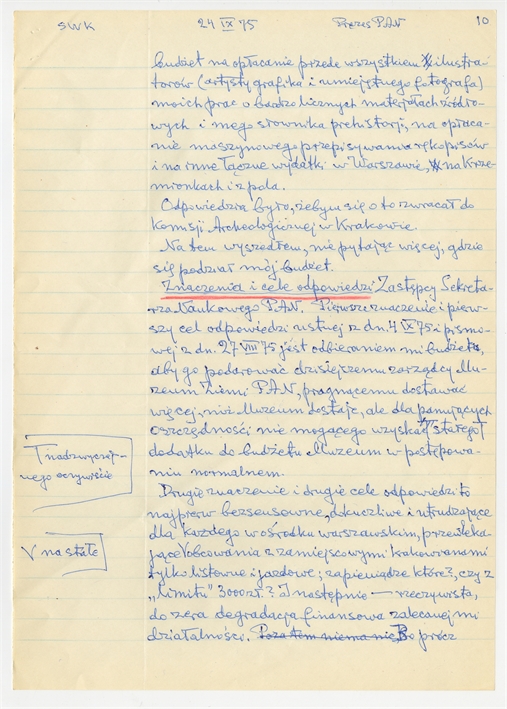 SWK 24 IX 75 Prezes PAN 10
budżet na opłacanie przede wszystkiem ilustra-
torów (artysty grafika i umiejętnego fotografa)
moich prac o bardzo licznych materjałach źródło-
wych i mego słownika prehistorji, na opłaca-
nie maszynowego przepisywania rękopisów
i na inne łączne wydatki w Warszawie, na Krze-
mionkach i z pola.
Odpowiedzią było, żebym się o to zwracał do
Komisji Archeologicznej w Krakowie.
Na tem wyszedłem, nie pytając więcej, gdzie
się podział mój budżet.
Znaczenia i cele odpowiedzi Zastępcy Sekreta-
rza Naukowego PAN. Pierwsze znaczenie i pierw-
szy cel odpowiedzi ustnej z dn. 4 IX 75 i pismo-
wej z dn. 27 VIII 75 jest odbieraniem mi budżetu,
aby go podarować dzisiejszemu zarządcy Mu-
zeum Ziemi PAN, pragnącemu dostawać
więcej, niż Muzeum dostaje, ale dla panujących
oszczędności nie mogącego wyskać stałego
dodatku do budżetu Muzeum w postępowa-
niu normalnem.
T nadzwyczaj-
nego oczywiście
Drugie znaczenie i drugie cele odpowiedzi to
najpierw bezsensowne, dokuczliwe i utrudzające
dla każdego w ośrodku warszawskim, przewleka-
jące V obcowania z zamiejscowymi krakowianami
V na stałe
tylko listowne i jazdowe; za pieniądze które?, czy z
„limitu" 3000 zł.? I następnie — rzeczywista,
do zera degradacja finansowa zalecanej mi
działalności. Poza tem niema nic Bo prócz